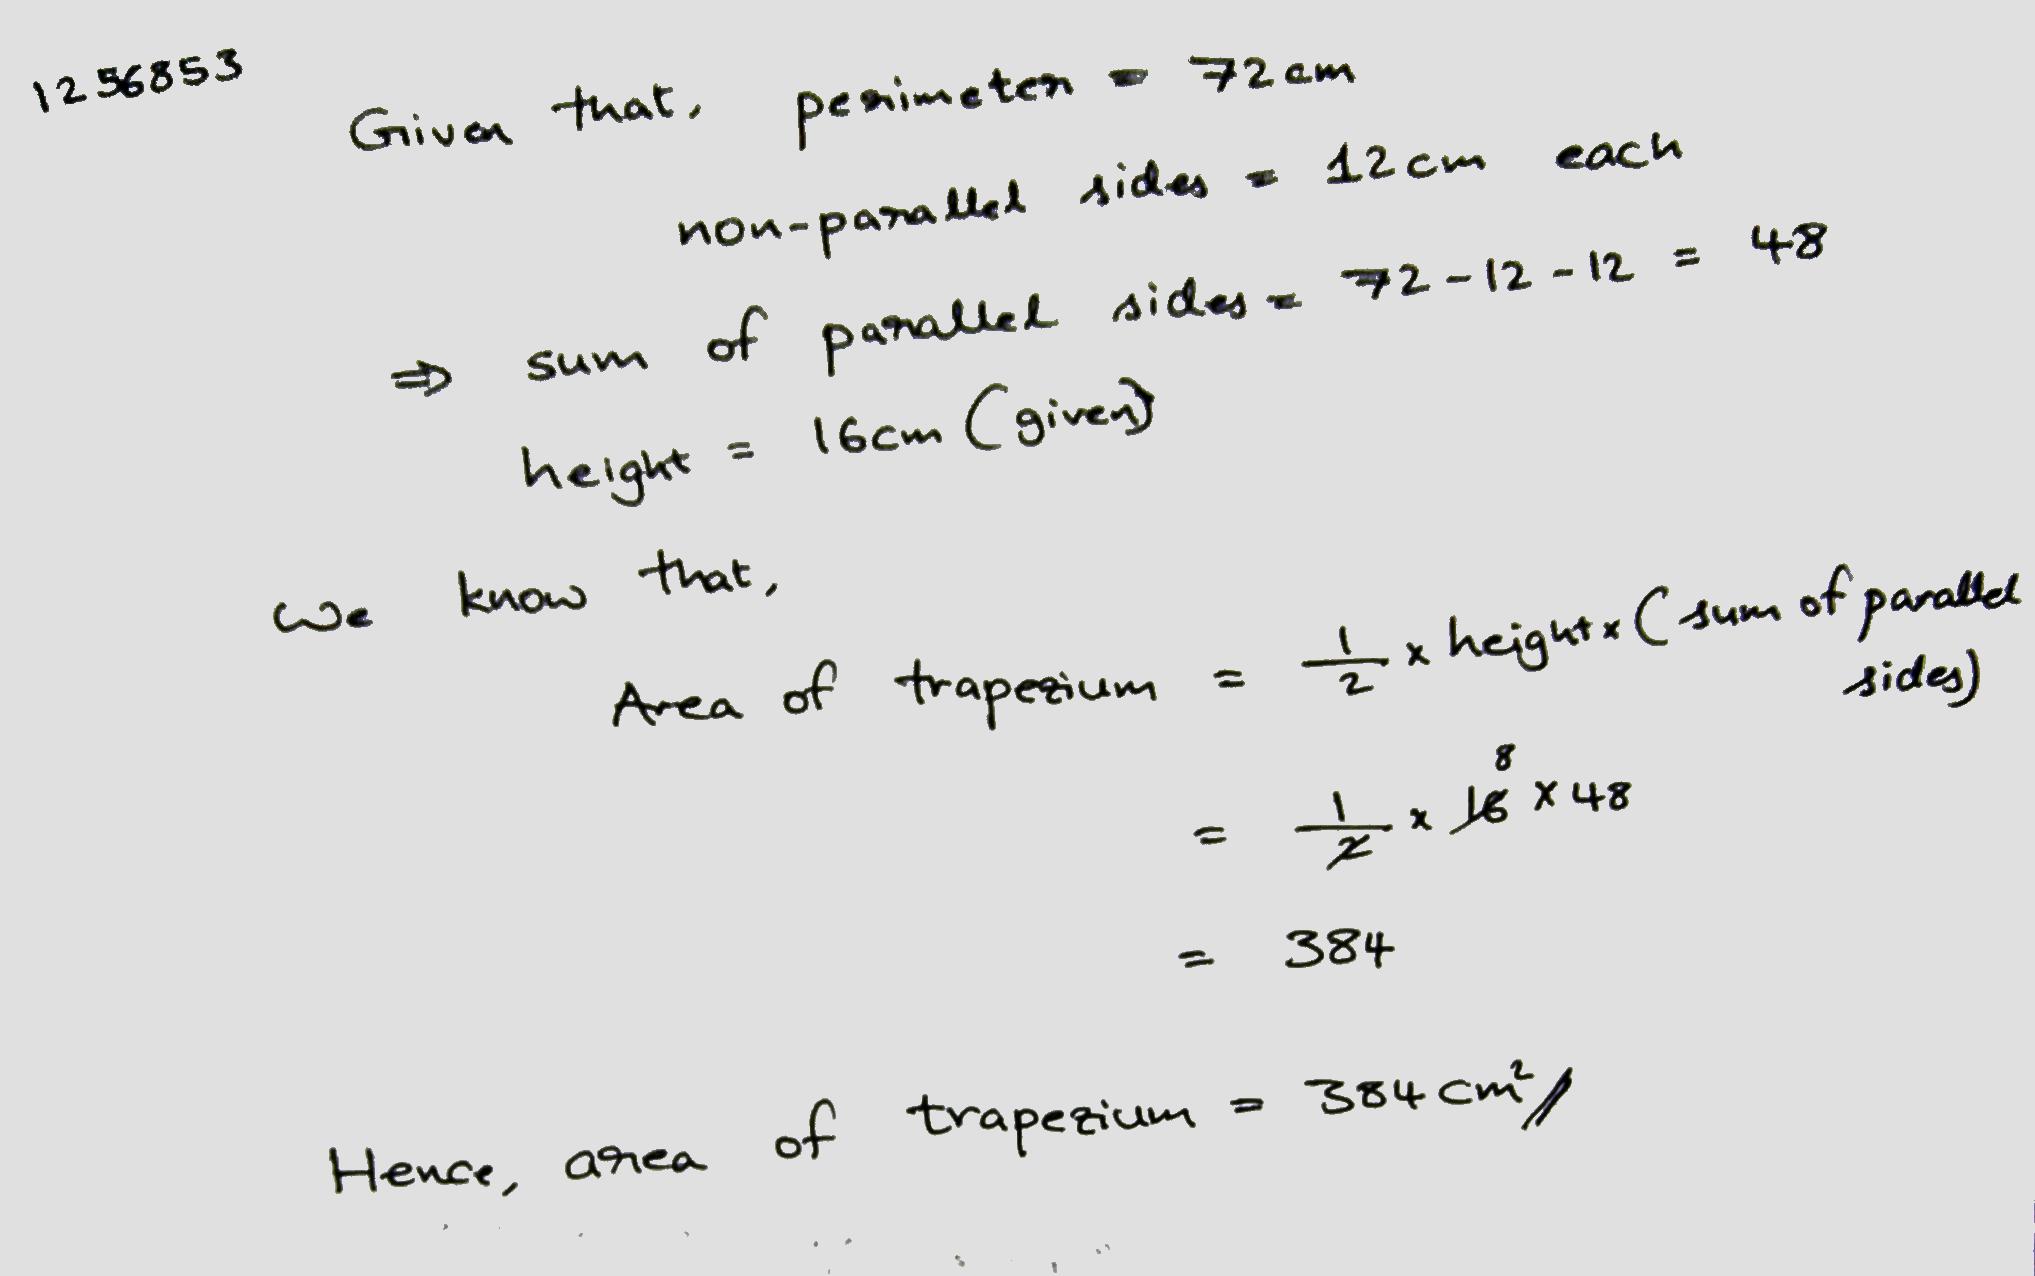 1256853
Given that, perimeter = 72cm
non-parallel sides = 12cm each
⇒ sum of parallel sides = 72-12-12 = 48
height = 16cm (given)
We know that,
Area of trapezium = 1/2 x height x (sum of parallel
sides)
= 1/2 x 16 8 x 48
= 384
Hence, area of trapezium = 384 cm²//